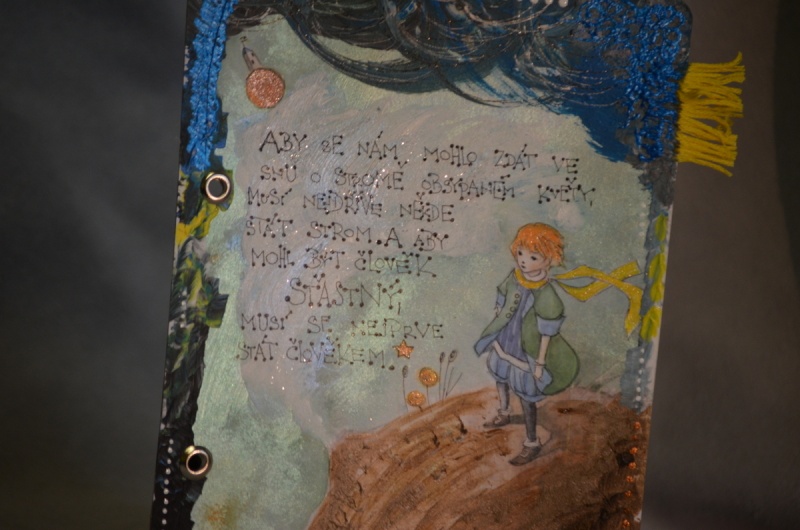 ABY SE NÁM MOHLO ZDÁT VE
SNU O STROMĚ OBSYPANÉM KVĚTY,
MUSÍ NEJDŘÍVE NĚKDE
STÁT STROM. A ABY
MOHL BÝT ČLOVĚK
ŠŤASTNÝ,
MUSÍ SE NEJPRVE
STÁT ČLOVĚKEM.